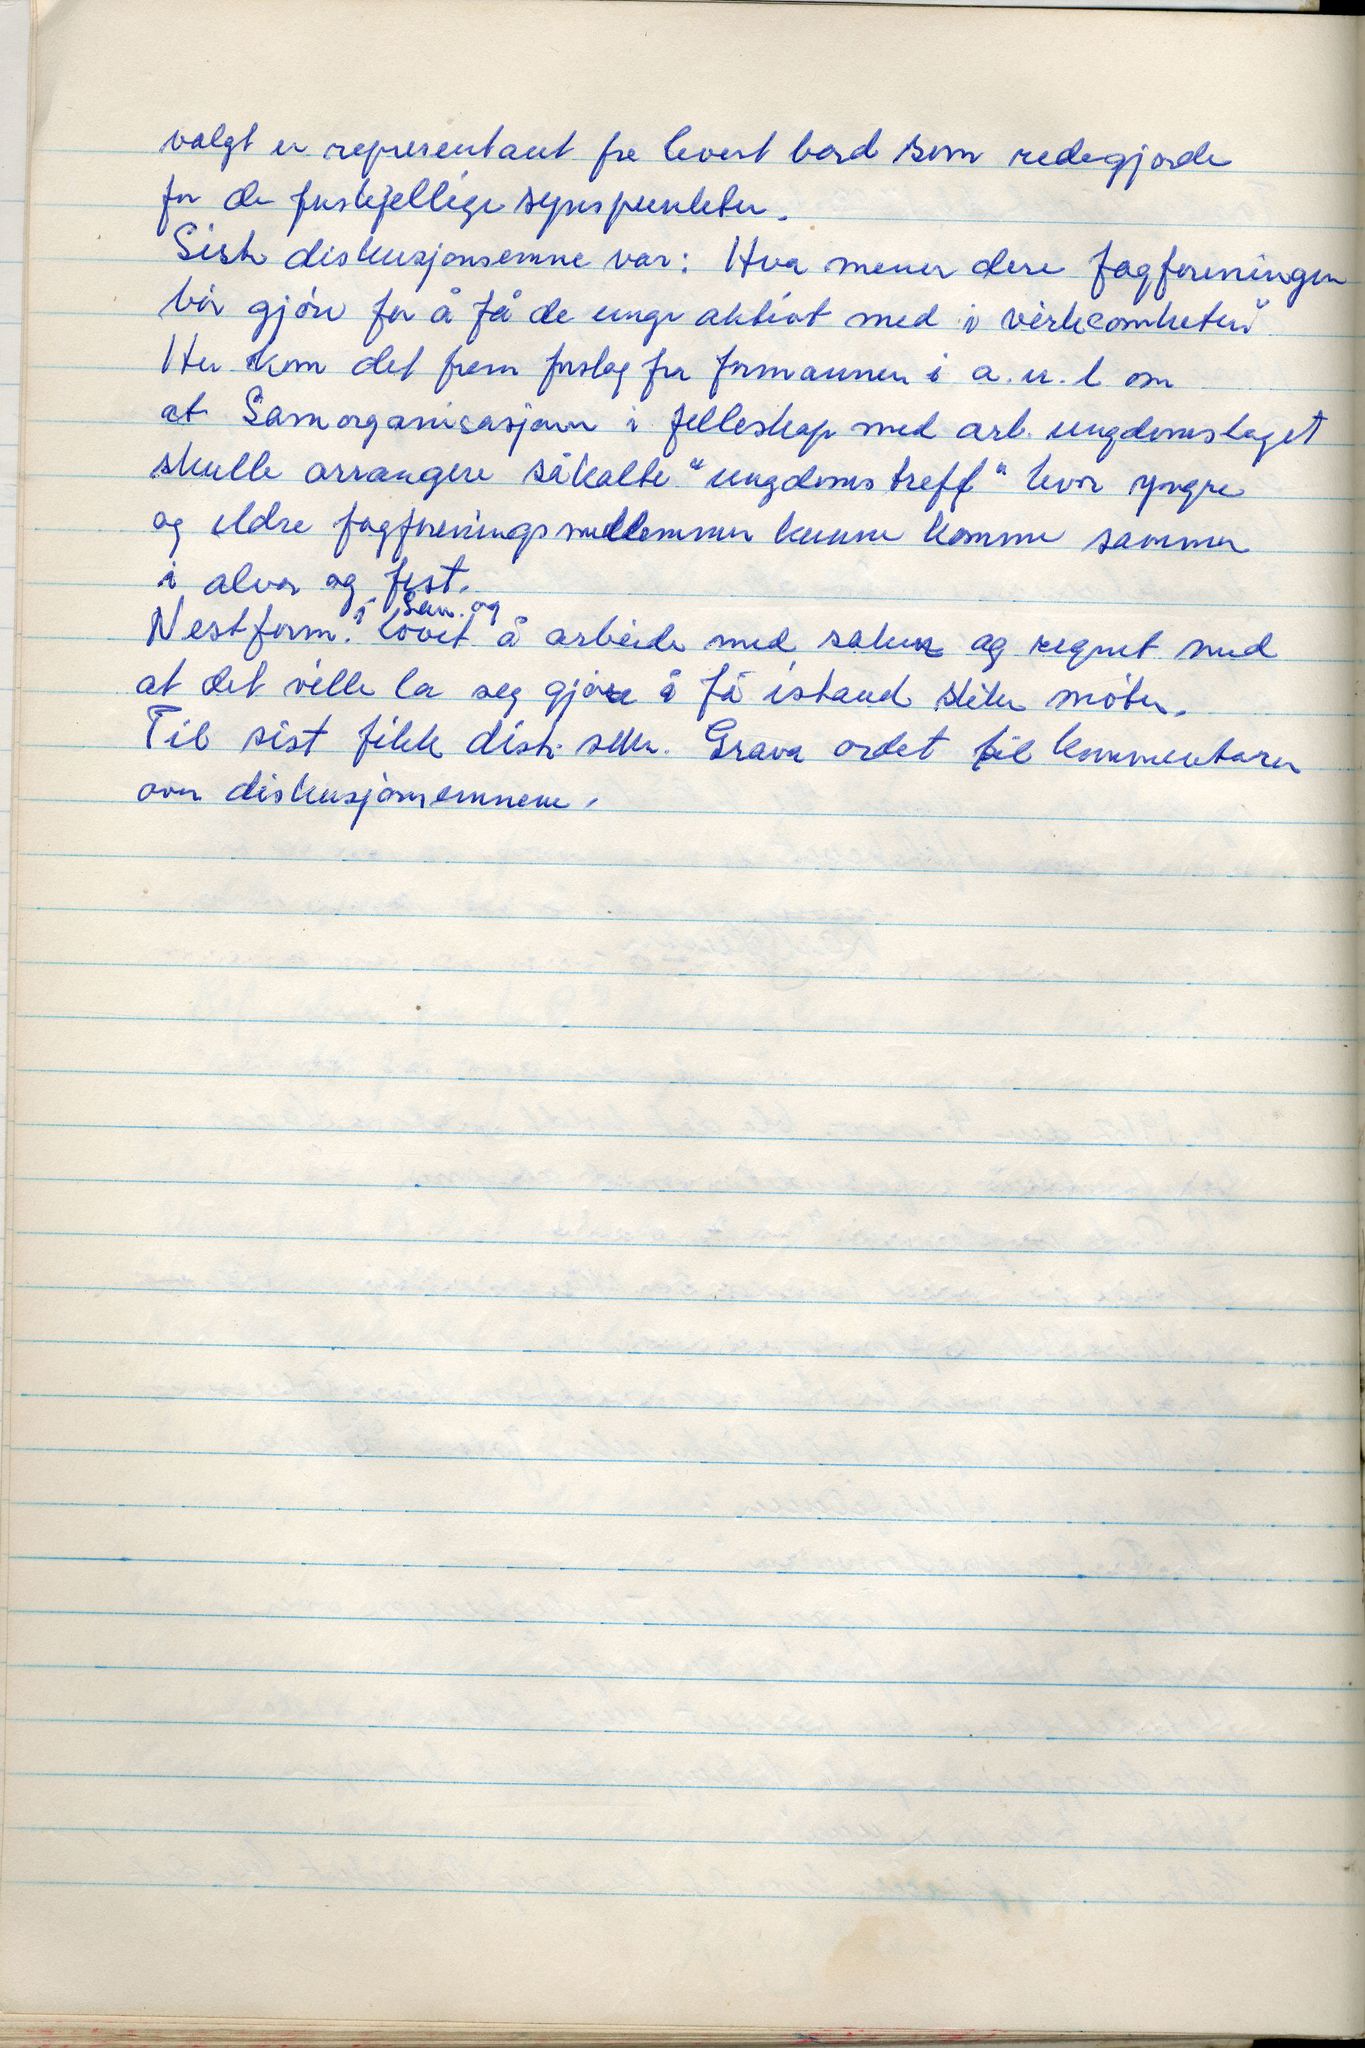 valgt en representant fra hvert bord som redegjorde
for de forskjellige synspunkter.
Siste diskusjonsemne var: Hva mener dere fagforeningen
bör gjöre for å få de unge aktivt med i virksomheten?
Her kom det frem forslag fra formannen i a.u.l om
at Samorganisasjonen i felleskap med arb. ungdomslaget
skulle arrangere såkalte "ungdomstreff" hvor yngre
og eldre fagforeningsmedlemmer kunne komme sammen
i alvor og fest.
Nestform. i Sam.org lovet å arbeide med saken og regnet med
at det ville la seg gjöre å få istand slike möter.
Til sist fikk distr. sekr. Grava ordet til kommentarer
over diskusjonsemnene.